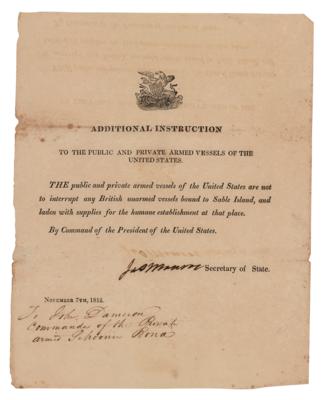 ADDITIONAL INSTRUCTION
TO THE PUBLIC AND PRIVATE ARMED VESSELS OF THE
UNITED STATES.
THE public and private armed vessels of the United States are not
to interrupt any British unarmed vessels bound to Sable Island, and
laden with supplies for the humane establishment at that place.
By Command of the President of the United States.
Jas Monroe Secretary of State.
NOVEMBER 7TH, 1812.
To John Dameron
Commander of the Private
armed Schooner Bona